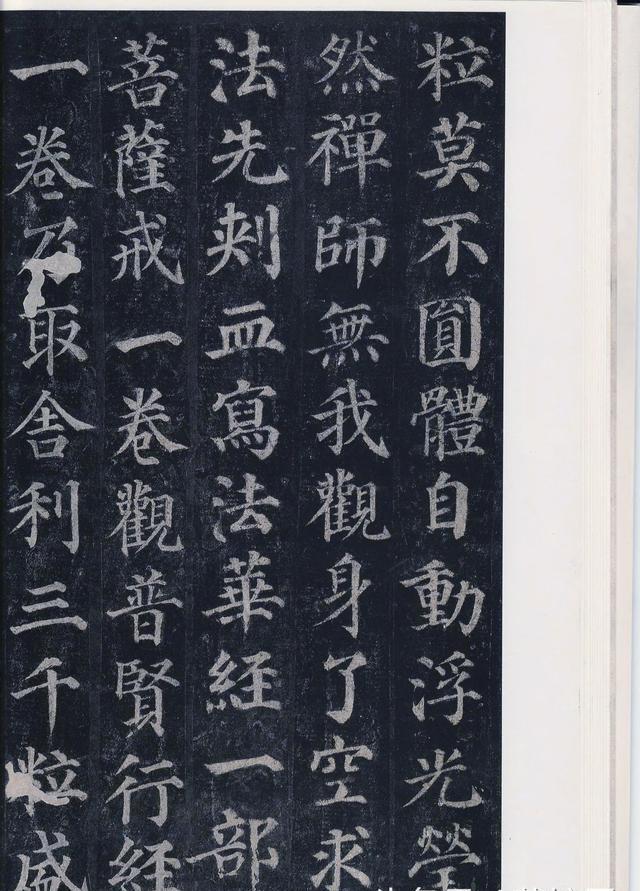 粒莫不圓體自動浮光瑩
然禪師無我觀身了空求
法先刺血寫法華経一部
菩薩戒一卷觀普賢行経
一卷乃取舎利三千粒盛